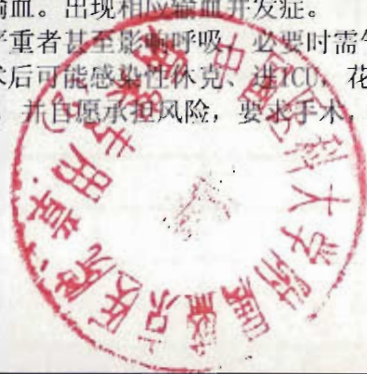 输血。出现相应输血并发症。
严重者甚至影响呼吸，必要时需气
术后可能感染性休克、进ICU，花
，并自愿承担风险，要求手术。
中国医科大学附属盛京医院
专用章